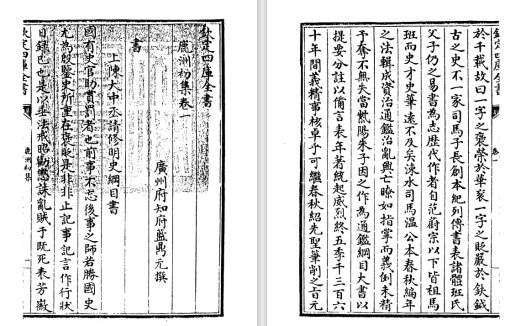 欽定四庫全書
鹿洲初集卷一
廣州府知府藍鼎元撰
書
上陳大中丞請修明史綱目書
國有史官助賞罰者也前事不忘後事之師若勝國史
尤為殷鑒史所重在褒貶是非非止記事記言作行狀
目錄已也是以垂法戒昭勸懲誅亂賊于既死表芳徽
欽定四庫全書
鹿洲初集
欽定四庫全書
卷一
於千載故曰一字之褒榮於華衮一字之貶嚴於鈇鉞
古之史不一家司馬子長創本紀列傳書表諸體班氏
父子仍之易書為志歷代作者自范蔚宗以下皆祖馬
班而史才史筆遠不及矣涑水司馬溫公本春秋編年
之法輯成資治通鑑治亂興亡瞭如指掌而義例未精
予奪不無失當紫陽朱子因之作為通鑑綱目大書以
提要分註以備言表年著統起威烈終五季千三百六
十年間義精事核卓乎可繼春秋紹先聖筆削之旨元